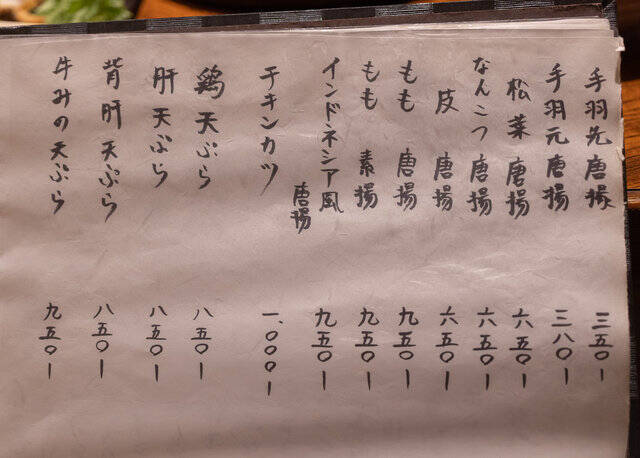 手羽先唐揚 三五〇ー
手羽元唐揚 三八〇ー
松葉唐揚 六五〇ー
なんこつ唐揚 六五〇ー
皮 唐揚 六五〇ー
もも 唐揚 九五〇ー
もも 素揚 九五〇ー
インドネシア風
唐揚 九五〇ー
チキンカツ 一、〇〇〇ー
鶏天ぷら 八五〇ー
肝天ぷら 八五〇ー
背肝天ぷら 八五〇ー
牛みの天ぷら 九五〇ー